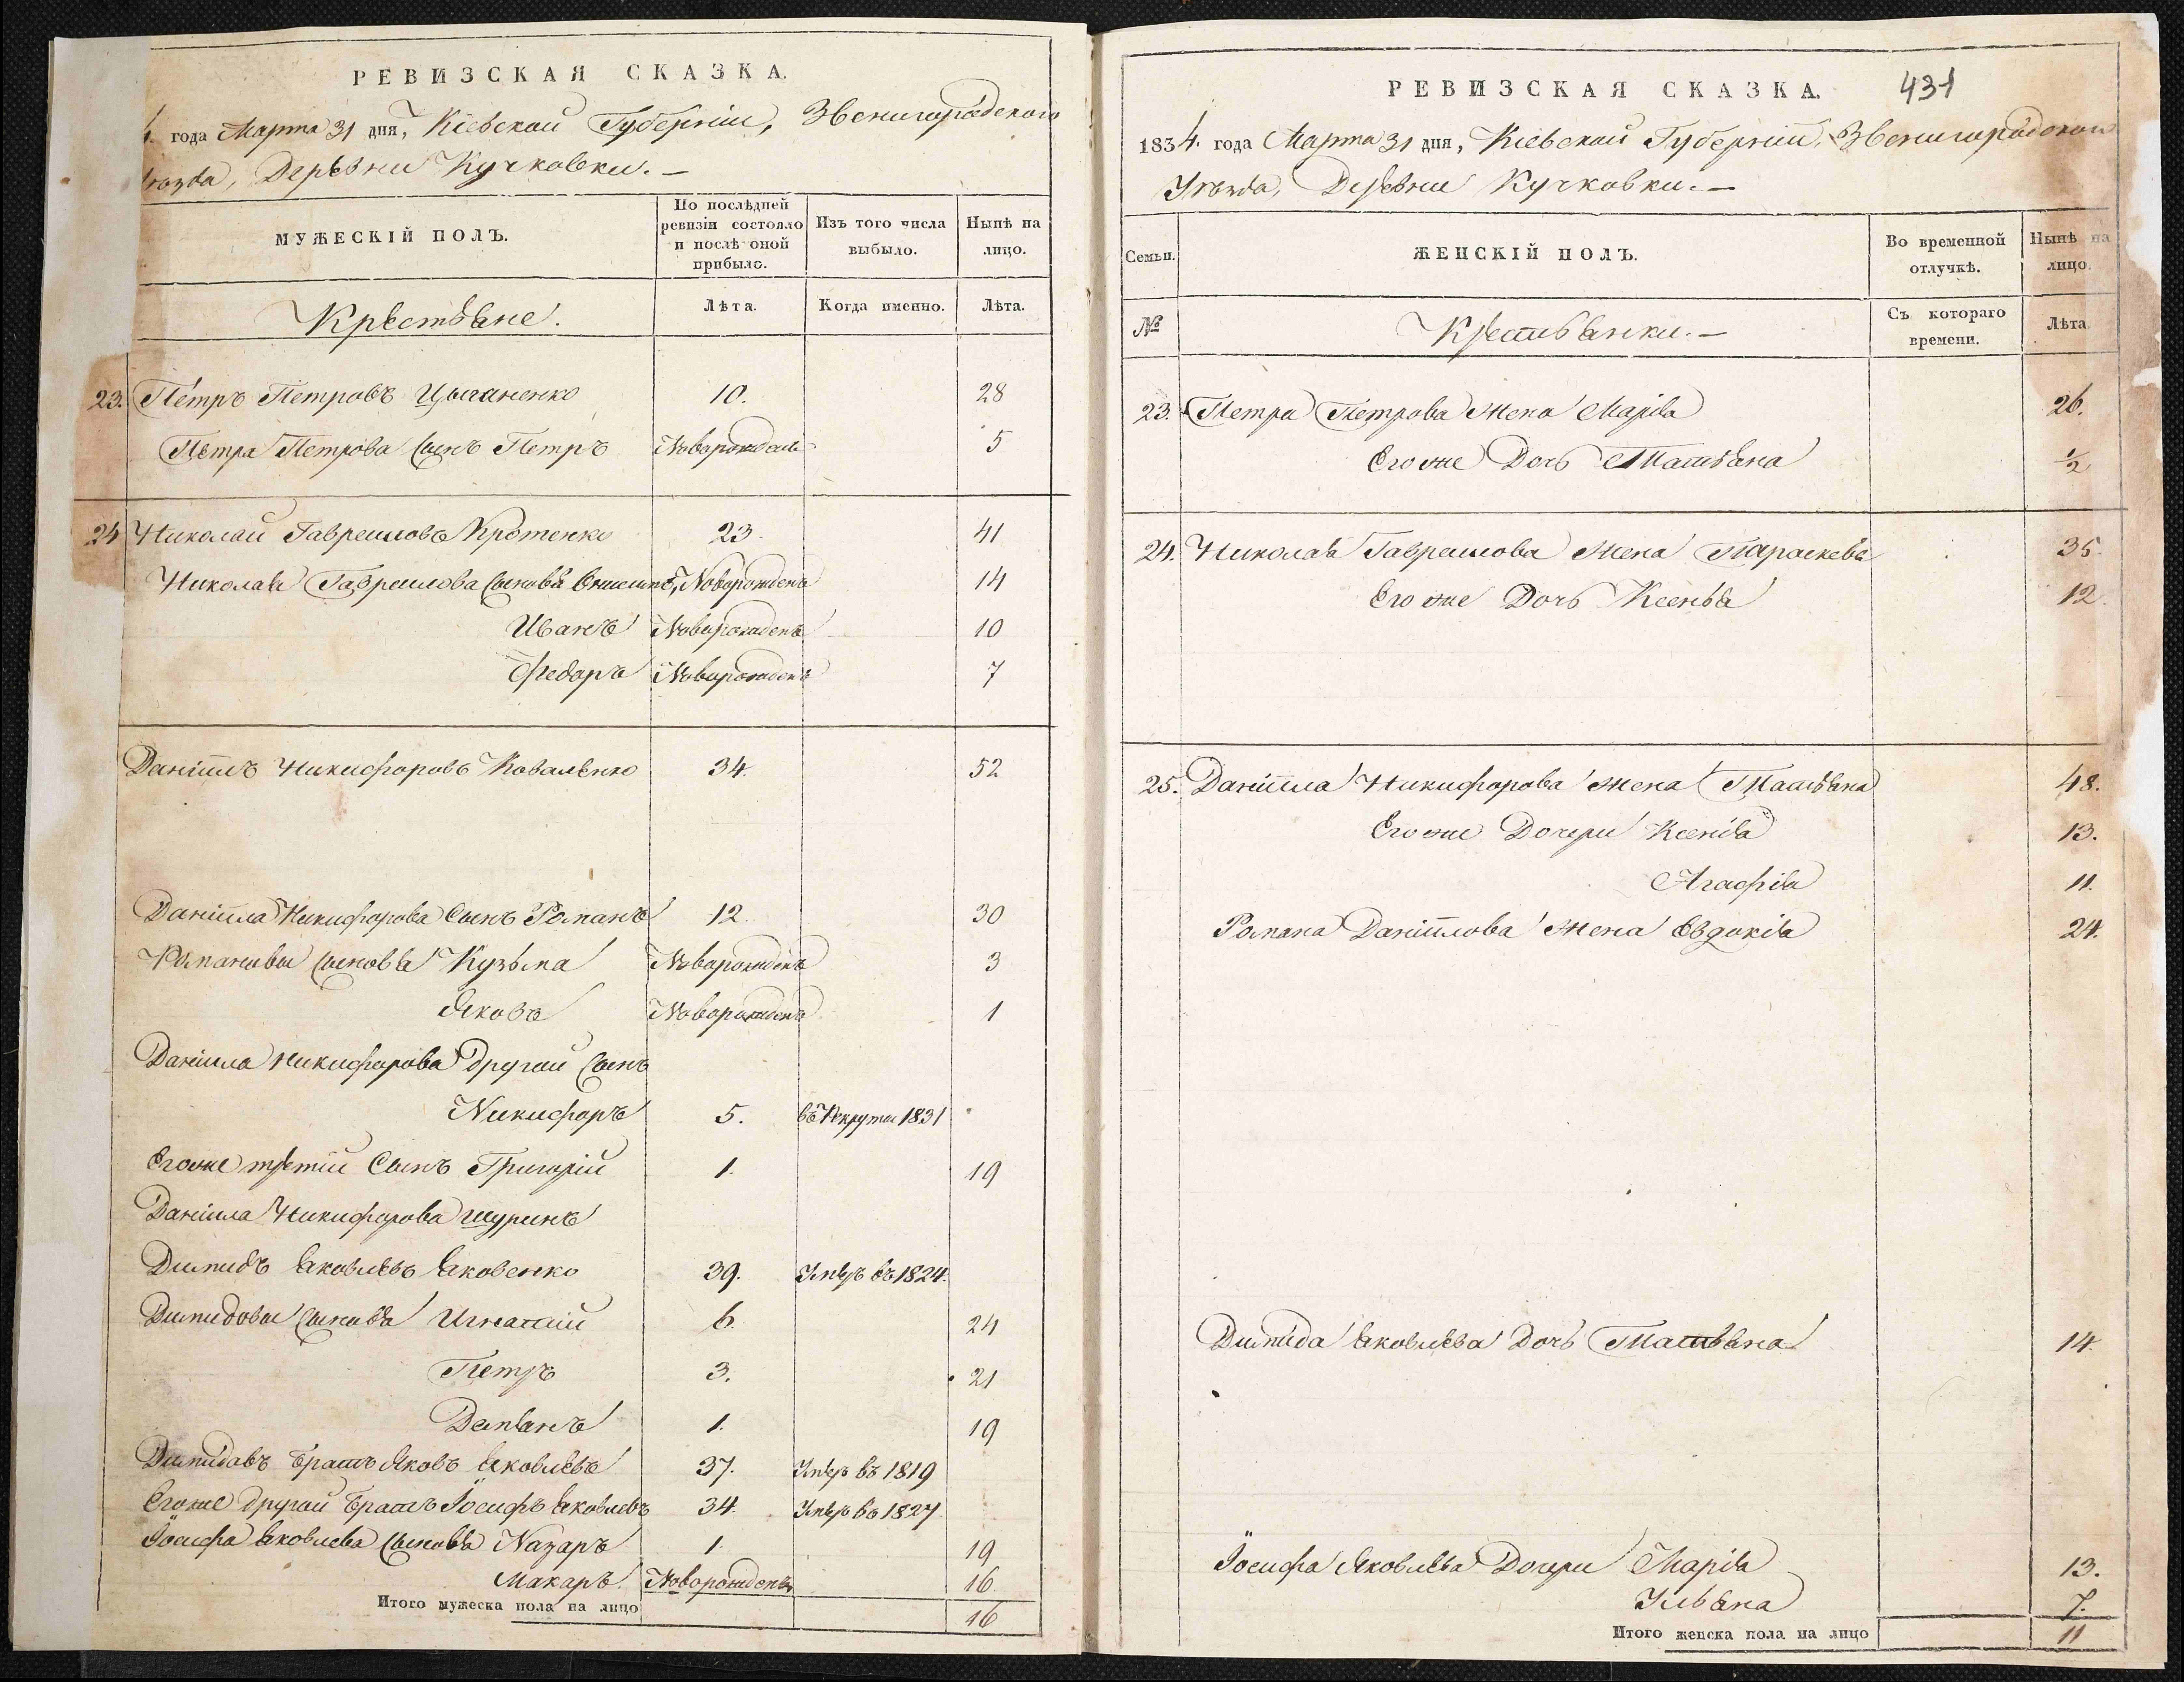 РЕВИЗСКАЯ СКАЗКА.
4. года Марта 31 дня, Кіевской Губерніи, Звенигородского
уѣзда, Деревни Кучковки. —
МУЖЕСКІЙ ПОЛЪ.
По послѣдней ревизіи состояло и послѣ оной прибыло.
Изъ того числа выбыло.
Нынѣ на лицо.
Крестьяне.
Лѣта.
Когда именно.
Лѣта.
23. Петръ Петровъ Цыганенко 10. 28
Петра Петрова Сынъ Петръ Новорожденъ 5
24 Николай Гавреиловъ Кротенко 23. 41
Николая Гавреилова Сыновья Новорожденъ 14
Иванъ Новорожденъ 10
Федоръ Новорожденъ 7
Даніилъ Никифоровъ Коваленко 34. 52
Даніила Никифорова Сынъ Романъ 12. 30
Романовы Сыновья Кузьма Новорожденъ 3
Яковъ Новорожденъ 1
Даніила Никифорова Другой Сынъ
Никифоръ 5. въ Рекруты 1831
Его же третій Сынъ Григорій 1. 19
Даніила Никифорова шуринъ
Дипидъ Яковлевъ Яковенко 39. Умеръ въ 1824.
Дипидовы Сыновья Игнатій 6. 24
Петръ 3. 21
Демьянъ 1. 19
Дипидовъ Братъ Яковъ Яковлевъ 37. Умеръ въ 1819
Его же другой Братъ Іосифъ Яковлевъ 34. Умеръ въ 1827.
Іосифа Яковлева Сыновья Назаръ 1. 19
Макаръ. Новорожденъ 16.
Итого мужеска пола на лицо 16
РЕВИЗСКАЯ СКАЗКА. 431
1834. года Марта 31 дня, Кіевской Губерніи, Звенигородского
Уѣзда, Деревни Кучковки. —
Семьи.
ЖЕНСКІЙ ПОЛЪ.
Во временной отлучкѣ.
Нынѣ на лицо.
№
Крестьянки. —
Съ котораго времени.
Лѣта.
23. Петра Петрова Жена Марія 26.
Его же Дочь Татьяна ½
24. Николая Гавреилова Жена Параскева 35
Его же Дочь Ксенья 12.
25. Даніила Никифорова Жена Татьяна 48.
Его же Дочери Ксенія 13.
Агафія 11.
Романа Даніилова Жена Евдокія 24.
Дипида Яковлева Дочь Татьяна 14.
Іосифа Яковлева Дочери Марія 13.
Ульяна 7.
Итого женска пола на лицо 11